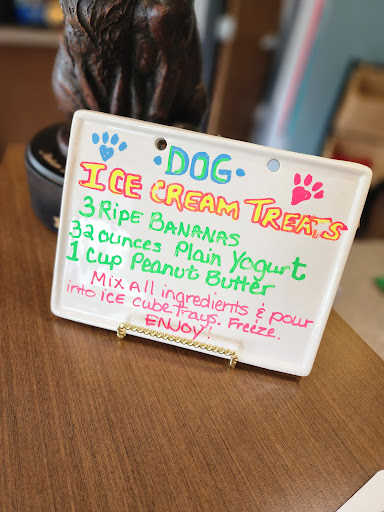 • DOG •
ICE CREAM TREATS
3 RIPE BANANAS
32 ounces Plain Yogurt
1 Cup Peanut Butter
Mix All ingredients & pour
into ice cube trays. Freeze.
ENJOY!